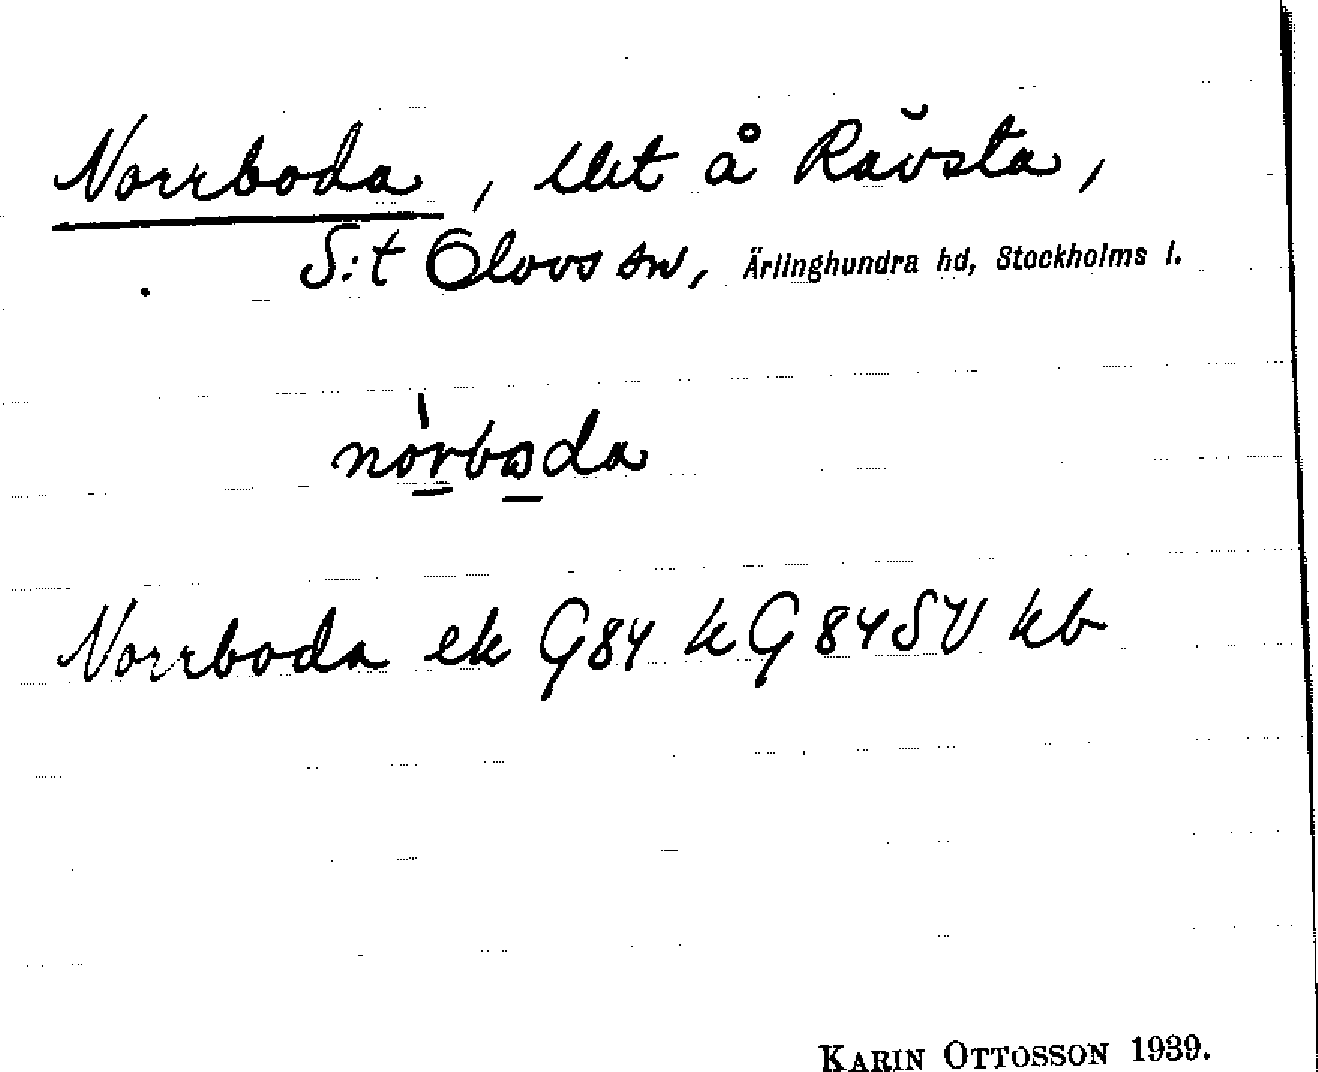 Norrboda, lht å Rävsta,
S:t Olovs sn, Ärlinghundra hd, Stockholms l.
nórboda
Norrboda ek G84 k G84SV kb
KARIN OTTOSSON 1939.